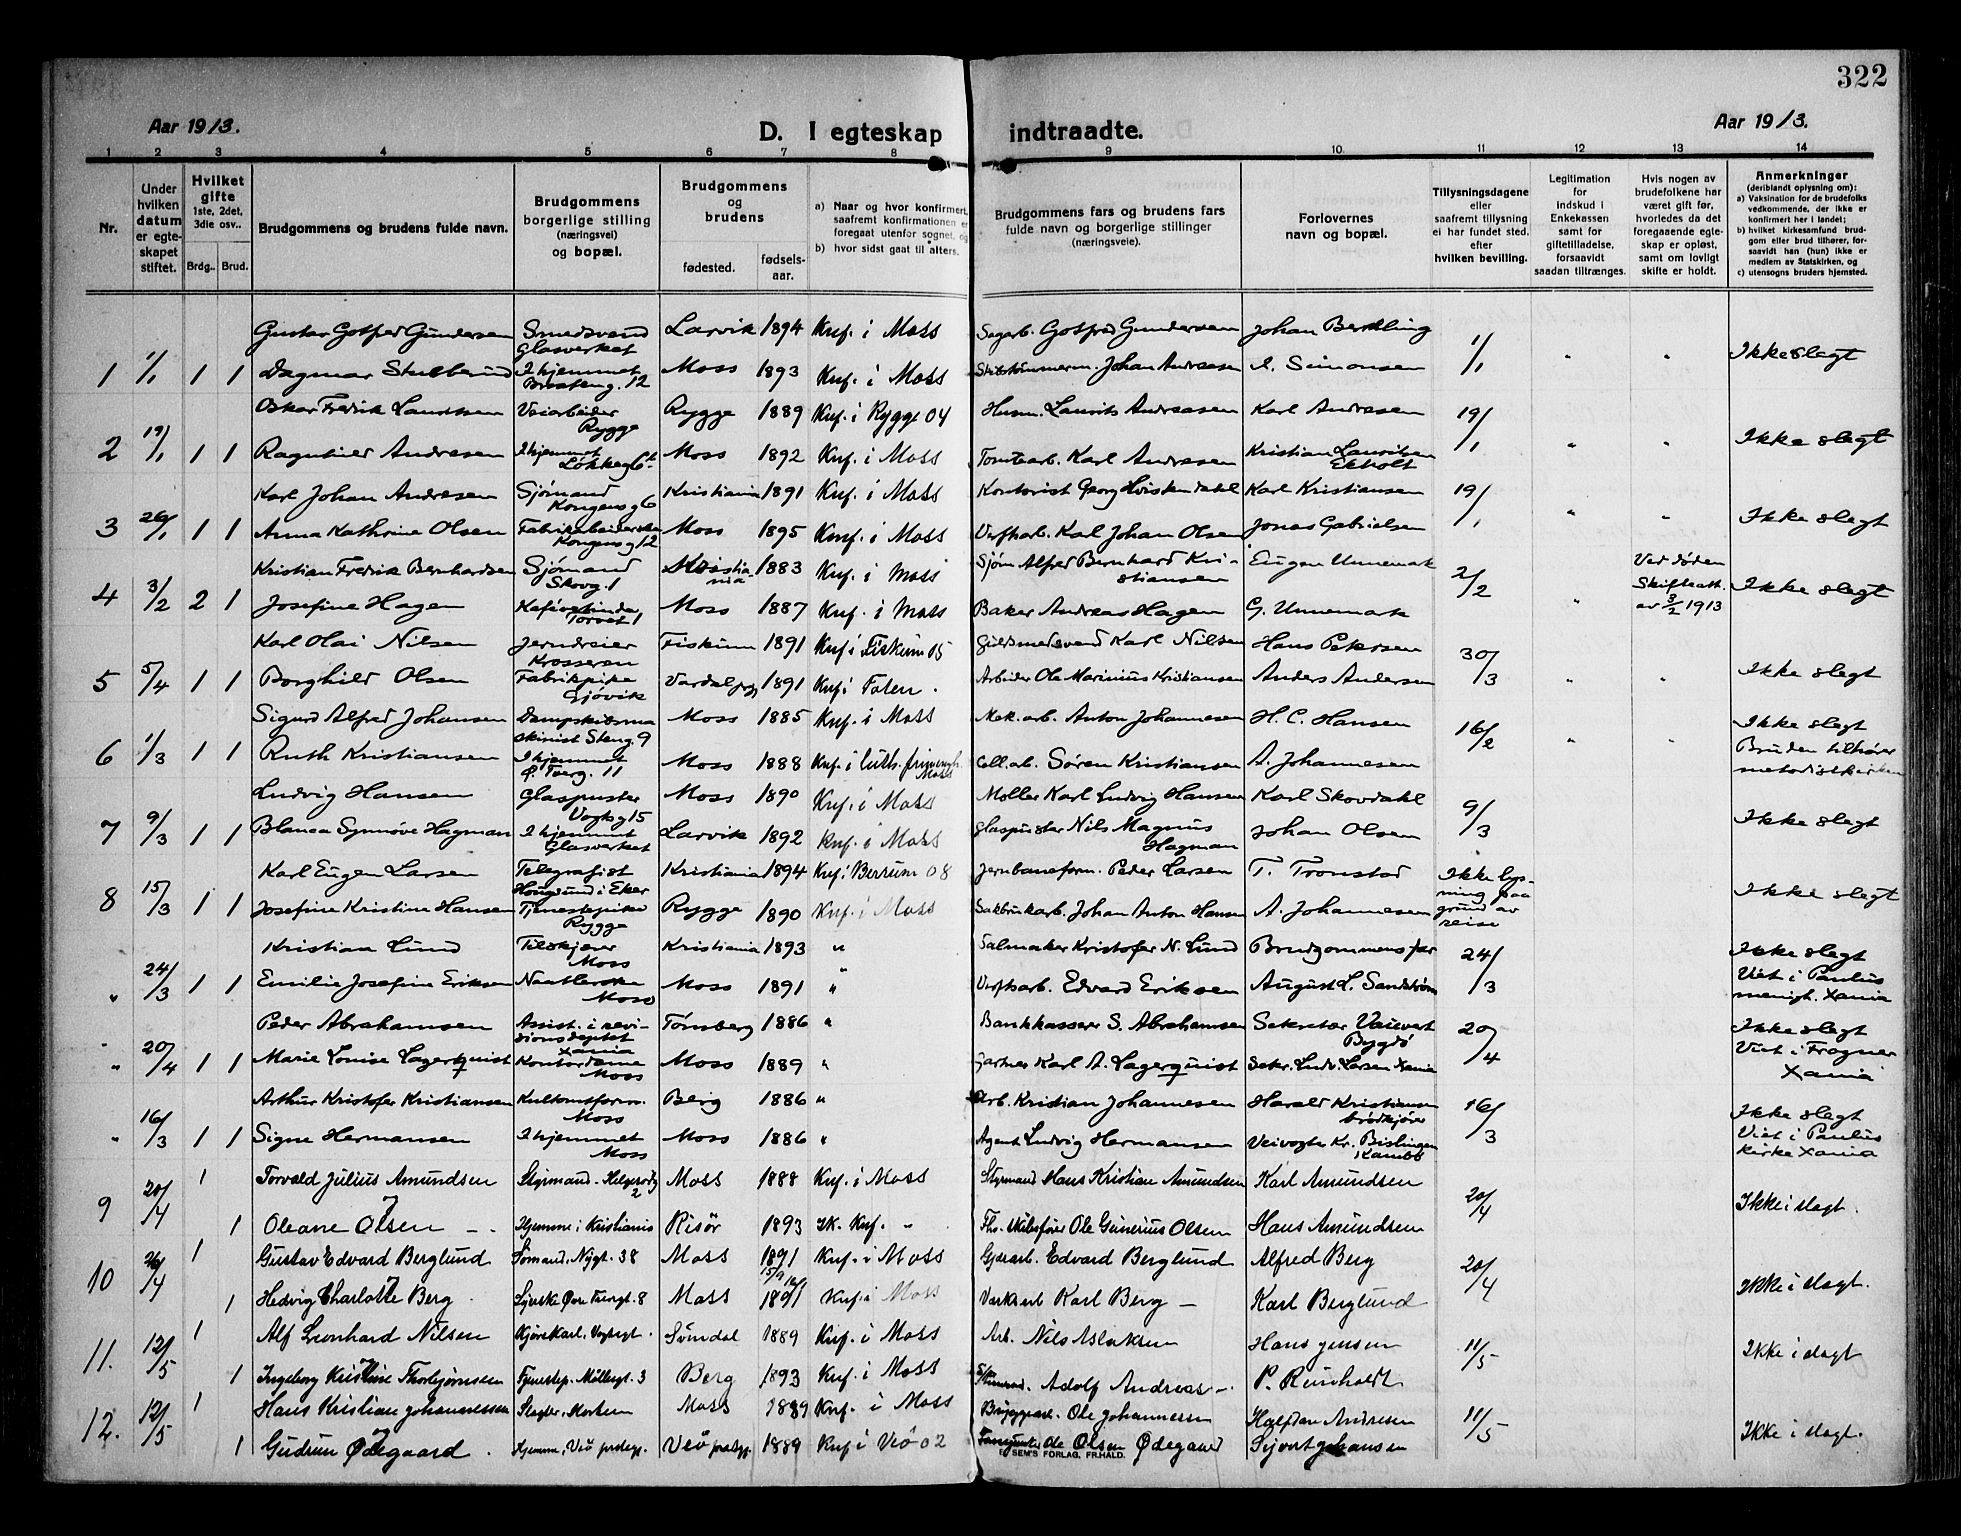 322
Aar 1913. D. I egteskap indtraadte. Aar 1913.
1 2 3 4 5 6 7 8 9 10. 11 12 13 14
Nr.
Under hvilken datum er egteskapet stiftet.
Hvilket gifte 1ste, 2det, 3die osv..
Brdg.. Brud.
Brudgommens og brudens fulde navn.
Brudgommens borgerlige stilling (næringsvei) og bopæl.
Brudgommens og brudens
fødested. fødselsaar.
a) Naar og hvor konfirmert, saafremt konfirmationen er foregaat utenfor sognet, og
b) hvor sidst gaat til alters.
Brudgommens fars og brudens fars fulde navn og borgerlige stillinger (næringsveie).
Forlovernes navn og bopæl.
Tillysningsdagene eller saafremt tillysning ei har fundet sted, efter hvilken bevilling.
Legitimation for indskud i Enkekassen samt for giftetilladelse, forsaavidt saadan tiltrænges.
Hvis nogen av brudefolkene har været gift før, hvorledes da det foregaaende egteskap er opløst, samt om lovligt skifte er holdt.
Anmerkninger (deriblandt oplysning om):
a) Vaksination for de brudefolks vedkommende, der ikke er konfirmert her i landet;
b) hvilket kirkesamfund brudgom eller brud tilhører, forsaavidt han (hun) ikke er medlem av Statskirken, og
c) utensogns bruders hjemsted.
Gustav Gotfred Gundersen Smedsvend Glasverket Larvik 1894 Knf. i Moss Sagarb. Gotfred Gundersen Johan Berthling
1 1/1 1 1 Dagmar I hjemmet 12 Moss 1893 Knf. i Moss Johan Andresen Simonsen 1/1 " " Ikke slegt
Oskar Fredrik Lauritsen Veiarbeider Rygge Rygge 1889 Knf. i Rygge 04 Husm. Laurits Andreasen Karl Andresen
2 19/1 1 1 Ragnhild Andresen I hjemmet Moss 1892 Knf. i Moss Tomtearb. Karl Andresen Kristian Lauritsen Ekholt 19/1 " " Ikke slegt
Karl Johan Andresen Sjømand Kongensg 6 Kristiania 1891 Knf. i Moss Kontorist Georg Hvistendahl Karl Kristiansen
3 26/1 1 1 Anna Kathrine Olsen Fabrikarbeiderske Kongensg 12 Moss 1895 Knf. i Moss Verftarb. Karl Johan Olsen Jonas Gabrielsen 19/1 " " Ikke slegt
Kristian Fredrik Bernhardsen Sjømand Skovg. 1 Kristiania 1883 Knf. i Moss Sjøm. Alfred Bernhard Kristiansen Eugen Unnemark
4 3/2 2 1 Josefine Hagen Kafévertinde Torvet 1 Moss 1887 Knf. i Moss Baker Andreas Hagen G. Unnemark 2/2 " Ved døden Skifteatt. av 3/2 1913 Ikke slegt
Karl Olai Nilsen Jerndreier Krosseren Fiskum 1891 Knf i Fiskum 05 Guldsmedsvend Karl Nilsen Hans Petersen
5 5/4 1 1 Borghild Olsen Fabrikpike Gjøvik Vardal 1891 Knf i Arbeider Ole Marinius Kristiansen Anders Andersen 30/3 " " Ikke slegt
Sigurd Alfred Johansen Dampskibsmaskinist Steng. 9 Moss 1885 Knf. i Moss Mek. arb. Anton Johannesen H. C. Hansen
6 1/3 1 1 Ruth Kristiansen I hjemmet 11 Moss 1888 Knf. i luth. Moss Cell. ab. Søren Kristiansen A. Johannesen 16/2 " " Ikke slegt Bruden tilhører metodistkirken
Ludvig Hansen Glaspuster Vogtsg 15 Moss 1890 Knf. i Moss Møller Karl Ludvig Hansen Karl Skovdahl
7 9/3 1 1 Blanca Synnøve Hagman I hjemmet Glasverket Larvik 1892 Knf. i Moss Glaspuster Nils Magnus Hagman Johan Olsen 9/3 Ikke slegt
Karl Eugen Larsen Telegrafist Hougsund i Eker Kristiania 1894 Knf. i Berrum 08 Jernbaneform. Peder Larsen T. Tronstad
8 15/3 1 1 Josefine Kristine Hansen Tjenestepike Rygge Rygge 1890 Knf. i Moss Johan Anton Hansen A. Johannesen Ikke lysning paa grund av reise Ikke slegt
Kristian Lund Tilskjærer Moss Kristiania 1893 " Salmaker Kristofer N. Lund Brudgommens far
" 24/3 1 1 Emilie Josefine Eriksen Moss Moss 1891 " Verftsarb. Edvard Eriksen August L. Sandstrøm 24/3 Ikke slegt Viet i Paulus menigt. Xania
Peder Abrahamsen Assist. i revisionsdeptet Xania Tønsberg 1886 " Bankkasserer S. Abrahamsen Sekretær Bygdø
" 20/4 1 1 Marie Louise Lagerquist Kontordame Moss Moss 1889 " Gartner Karl A. Lagerquist Sekr. Ludv. Larsen Xania 20/4 Ikke slegt Viet i Frogner Xania
Arthur Kristofer Kristiansen Moss Berg 1886 " Arb. Kristian Johannesen Harald Kristiansen brødkjører
" 16/3 1 1 Signe Hermansen I hjemmet Moss Moss 1886 " Agent Ludvig Hermansen Veivogter Kr. Bislingen Kambo 16/3 Ikke slegt Viet i Paulus kirke Xania
1 Torvald Julius Amundsen Styrmand. 2 Moss 1888 Knf. i Moss Styrmand Hans Kristian Amundsen Karl Amundsen
9 20/4 1 Oleane Olsen Hjemme i Kristiania Risör 1893 Knf. " Ole Gunerius Olsen Hans Amundsen 20/4 Ikke i slegt.
1 Gustav Edvard Berglund Sømand. Nygt. 38 Moss 1891 15/9 Knf. i Moss Edvard Berglund Alfred Berg
10 26/4 1 Hedvig Charlotte Berg. 8 Moss 1891 Knf. i Moss Verksarb Karl Berg Karl Berglund 20/4 Ikke i slegt.
1 Alf Leonhard Nilsen Kjørekarl, Vogtsgt. Søndal 1889 Knf. i Moss Arb. Nils Aslaksen Hans Jensen
11. 12/5 1 Ingeborg Kristine Thorbjørnsen Tjenestep. Møllergt. 3 Berg 1893 Knf. i Moss Adolf Andreas P. Reinholdt 11/5 Ikke i slegt
1 Hans Kristian Johannessen Slagter, Moss 1889 Knf. i Moss Bryggearb. Ole Johannessen Halfdan Andresen
12. 12/5 1 Gudrun Ødegaard. Hjemme, Veö prstgj. Veö prstgj. 1889 Knf i Veö 02 Ole Olsen Ødegaard Sijvert Johansen 11/5 Ikke i slegt.
SEM'S FORLAG, FR.HALD.